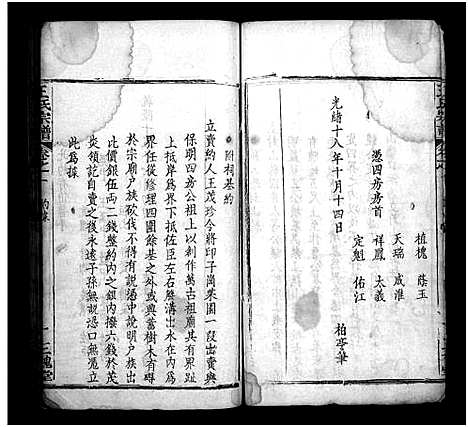 憑四房房首
植槐 蔭玉
天瑞 咸准
祥鳳 太義
定魁 佑江
柏亭筆
光緒十八年十月十四日
附祠基約
立賣約人王茂珍今將印子崗菜園一段出賣與
保明四房公祖上以剏作萬古祖廟其有界趾
上抵岸為界下抵佐臣左右磬溝出水在內為
界任從修理四圍餘基之外或興蓄樹木有碍
於宗廟戶族砍伐不得有説憑中說明戶族出
比價銀伍両二錢整約內之銀內撥六錢於茂
炎領訖自賣之後永遠子孫無説憑口無憑立
此為據
王氏宗譜 卷之一
三槐堂